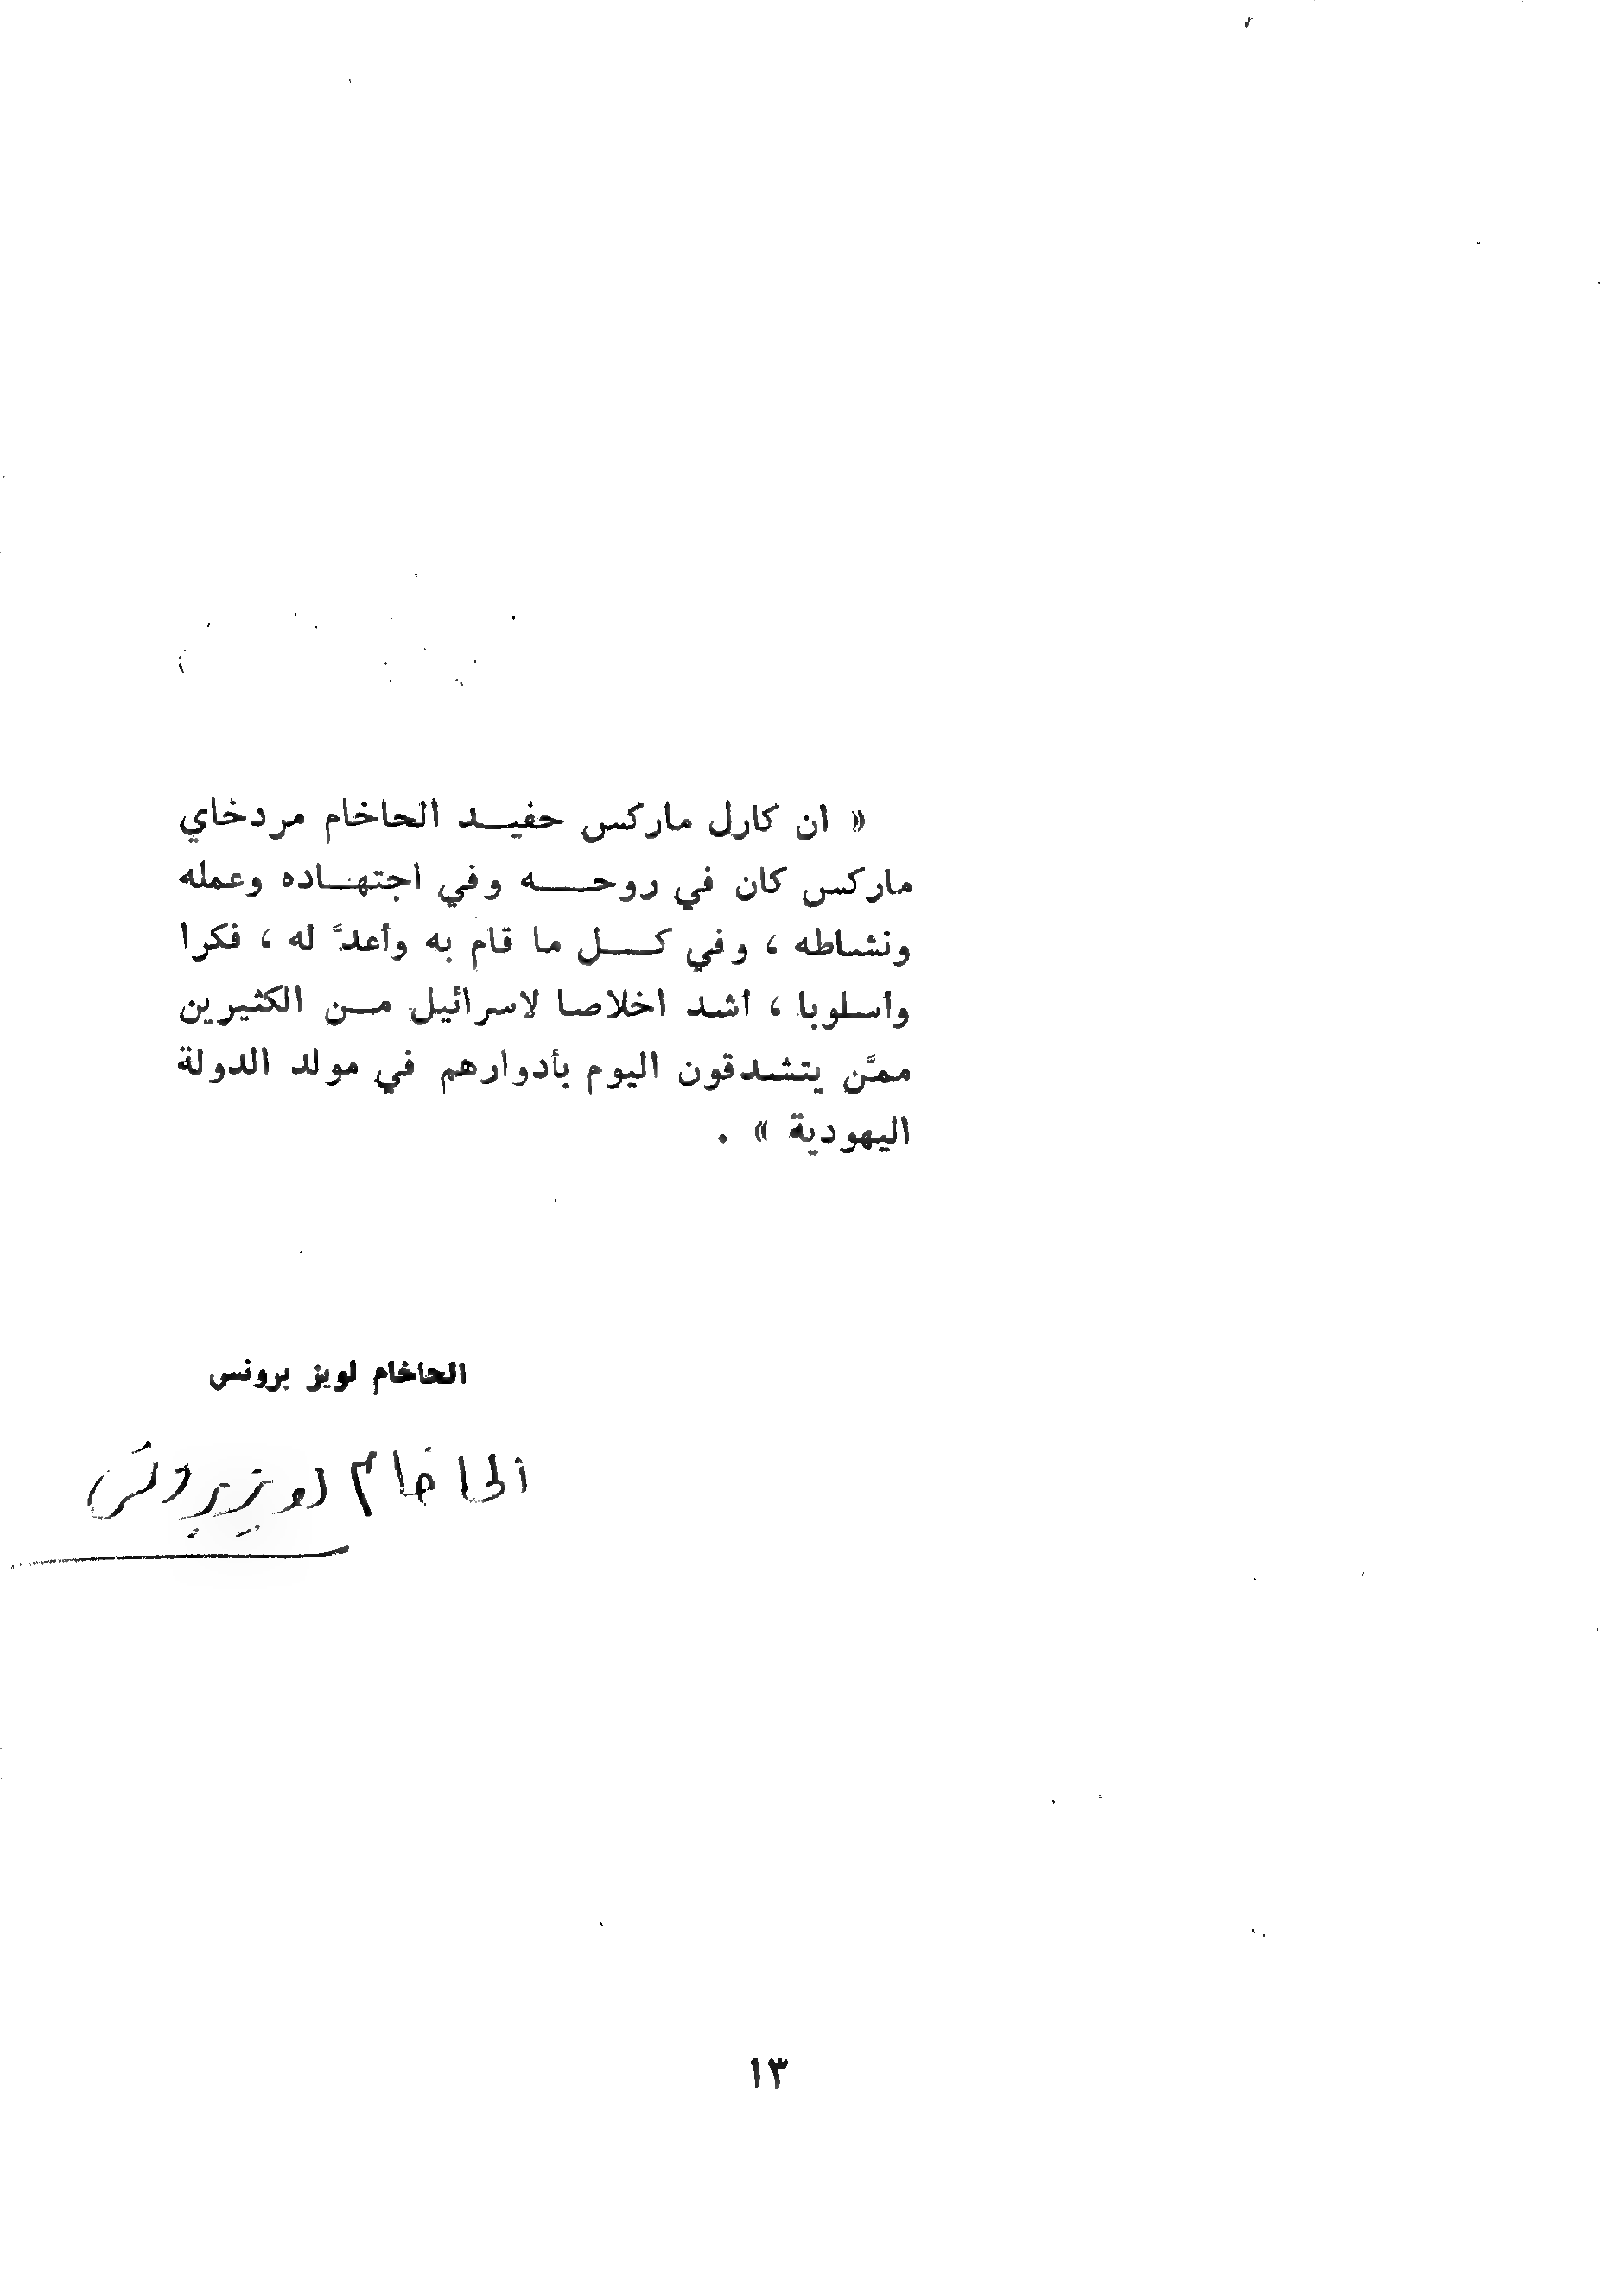 « ان كارل ماركس حفيـــد الحاخام مردخاي
ماركس كان في روحــــه وفي اجتهـــاده وعمله
ونشاطه ، وفي كــــل ما قام به وأعدَّ له ، فكرا
وأسلوبا ، أشد اخلاصا لاسرائيل مــن الكثيرين
ممَّن يتشدقون اليوم بأدوارهم في مولد الدولة
اليهودية » .
الحاخام لويز برونس
الحاخام لويز برونس
١٣